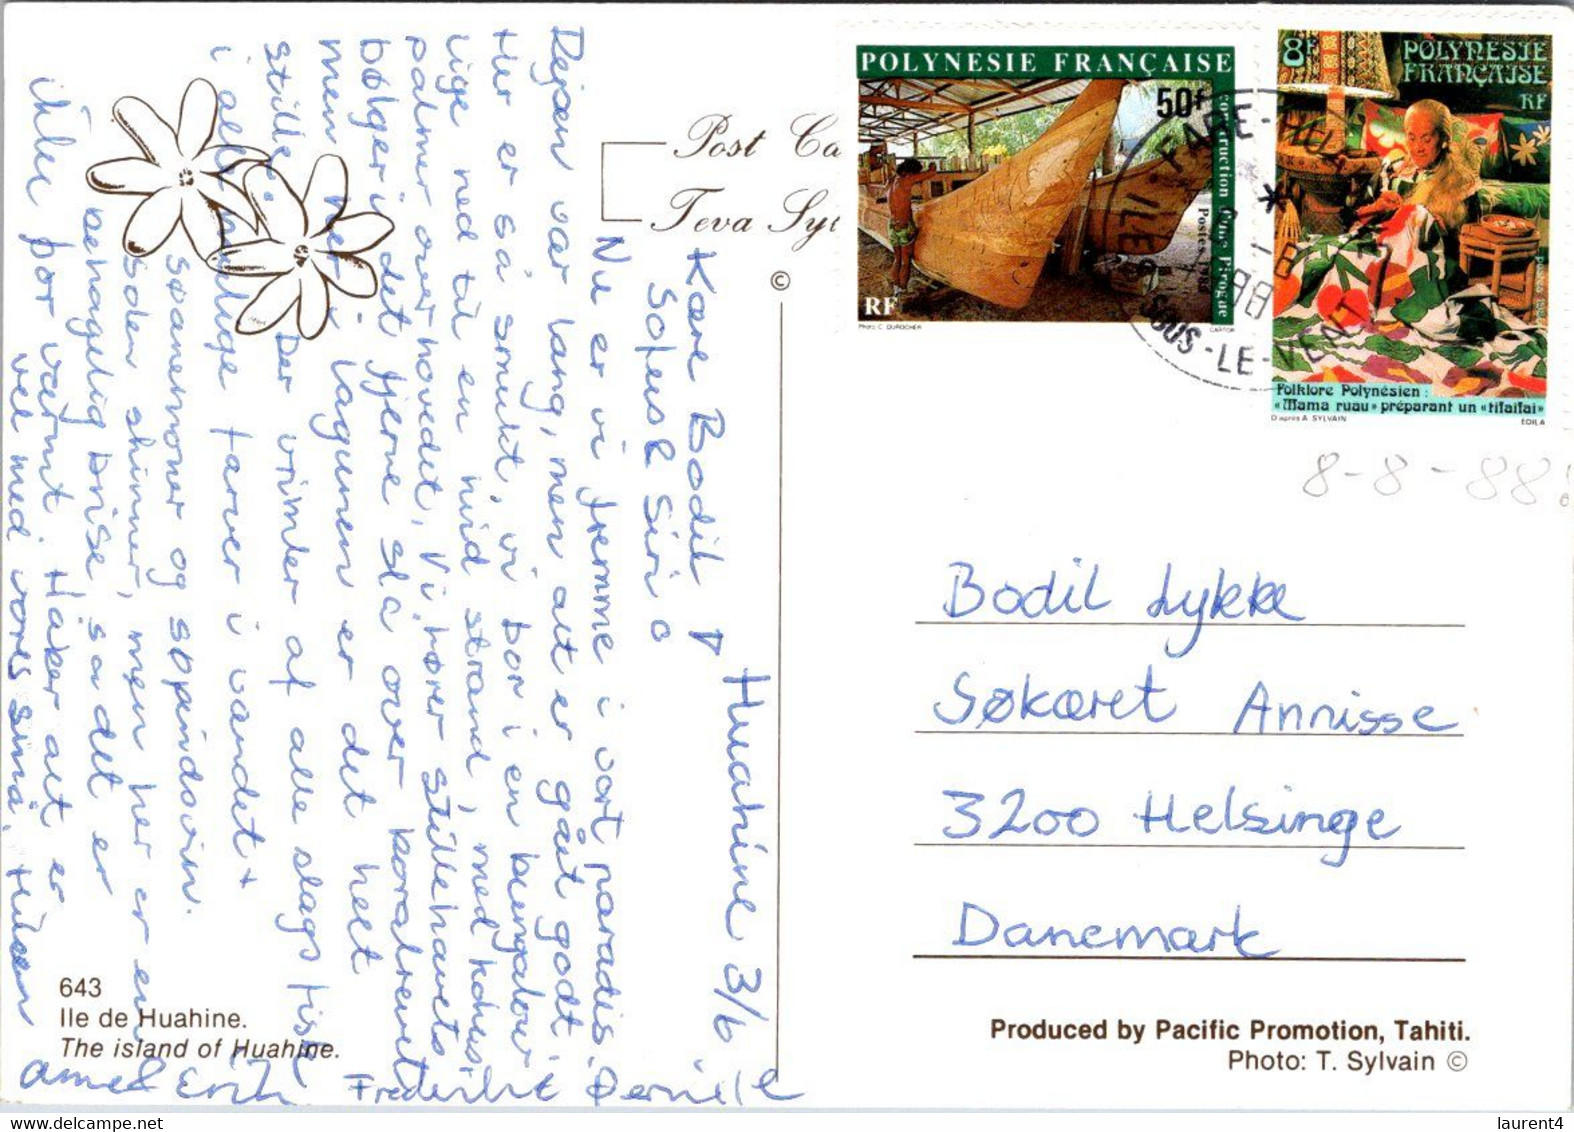 Huahine 3/6
Kære Bodil
Sofus & Siri
Nu er vi fremme i vort paradis.
Rejsen var lang, men alt er gået godt.
Her er så smukt, vi bor i en bungalow
lige ned til en hvid strand, med kokus
palmer over hovedet. Vi hører stillehavets
bølger i det fjerne slå over koralrevet
men her i lagunen er det helt
stille. Der vrimler af alle slags fisk
i alle mulige farver i vandet +
søanemoner og søpindsvin.
Solen skinner, men her er en
behagelig brise, så det er
ikke for varmt. Håber alt er
vel med vores små. Hilsen
Anne Erik Frederikke Pernille
Post Ca
Teva Syl
©
643
Ile de Huahine.
The island of Huahine.
POLYNESIE FRANÇAISE
50F
construction d'une Pirogue
Postes 1986
RF
Photo C. DUROCHER
CARTOR
8F
POLYNESIE
FRANÇAISE
RF
Folklore Polynésien :
«Mama ruau» préparant un «tifaifai»
D'après A. SYLVAIN
EDILA
FARE-HUAHINE
ILES SOUS-LE-VENT
8-8-88!
Bodil Lykke
Søkæret Annisse
3200 Helsinge
Danemark
Produced by Pacific Promotion, Tahiti.
Photo: T. Sylvain ©
laurent4